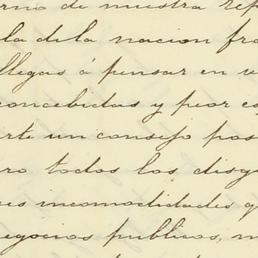 erno de nuestra rep
la de la nacion fra
llegas á pensar en v
concebidas y peor es
arte un consejo pos
ro todos los disgu
es incomodidades q
negocios publicos, m